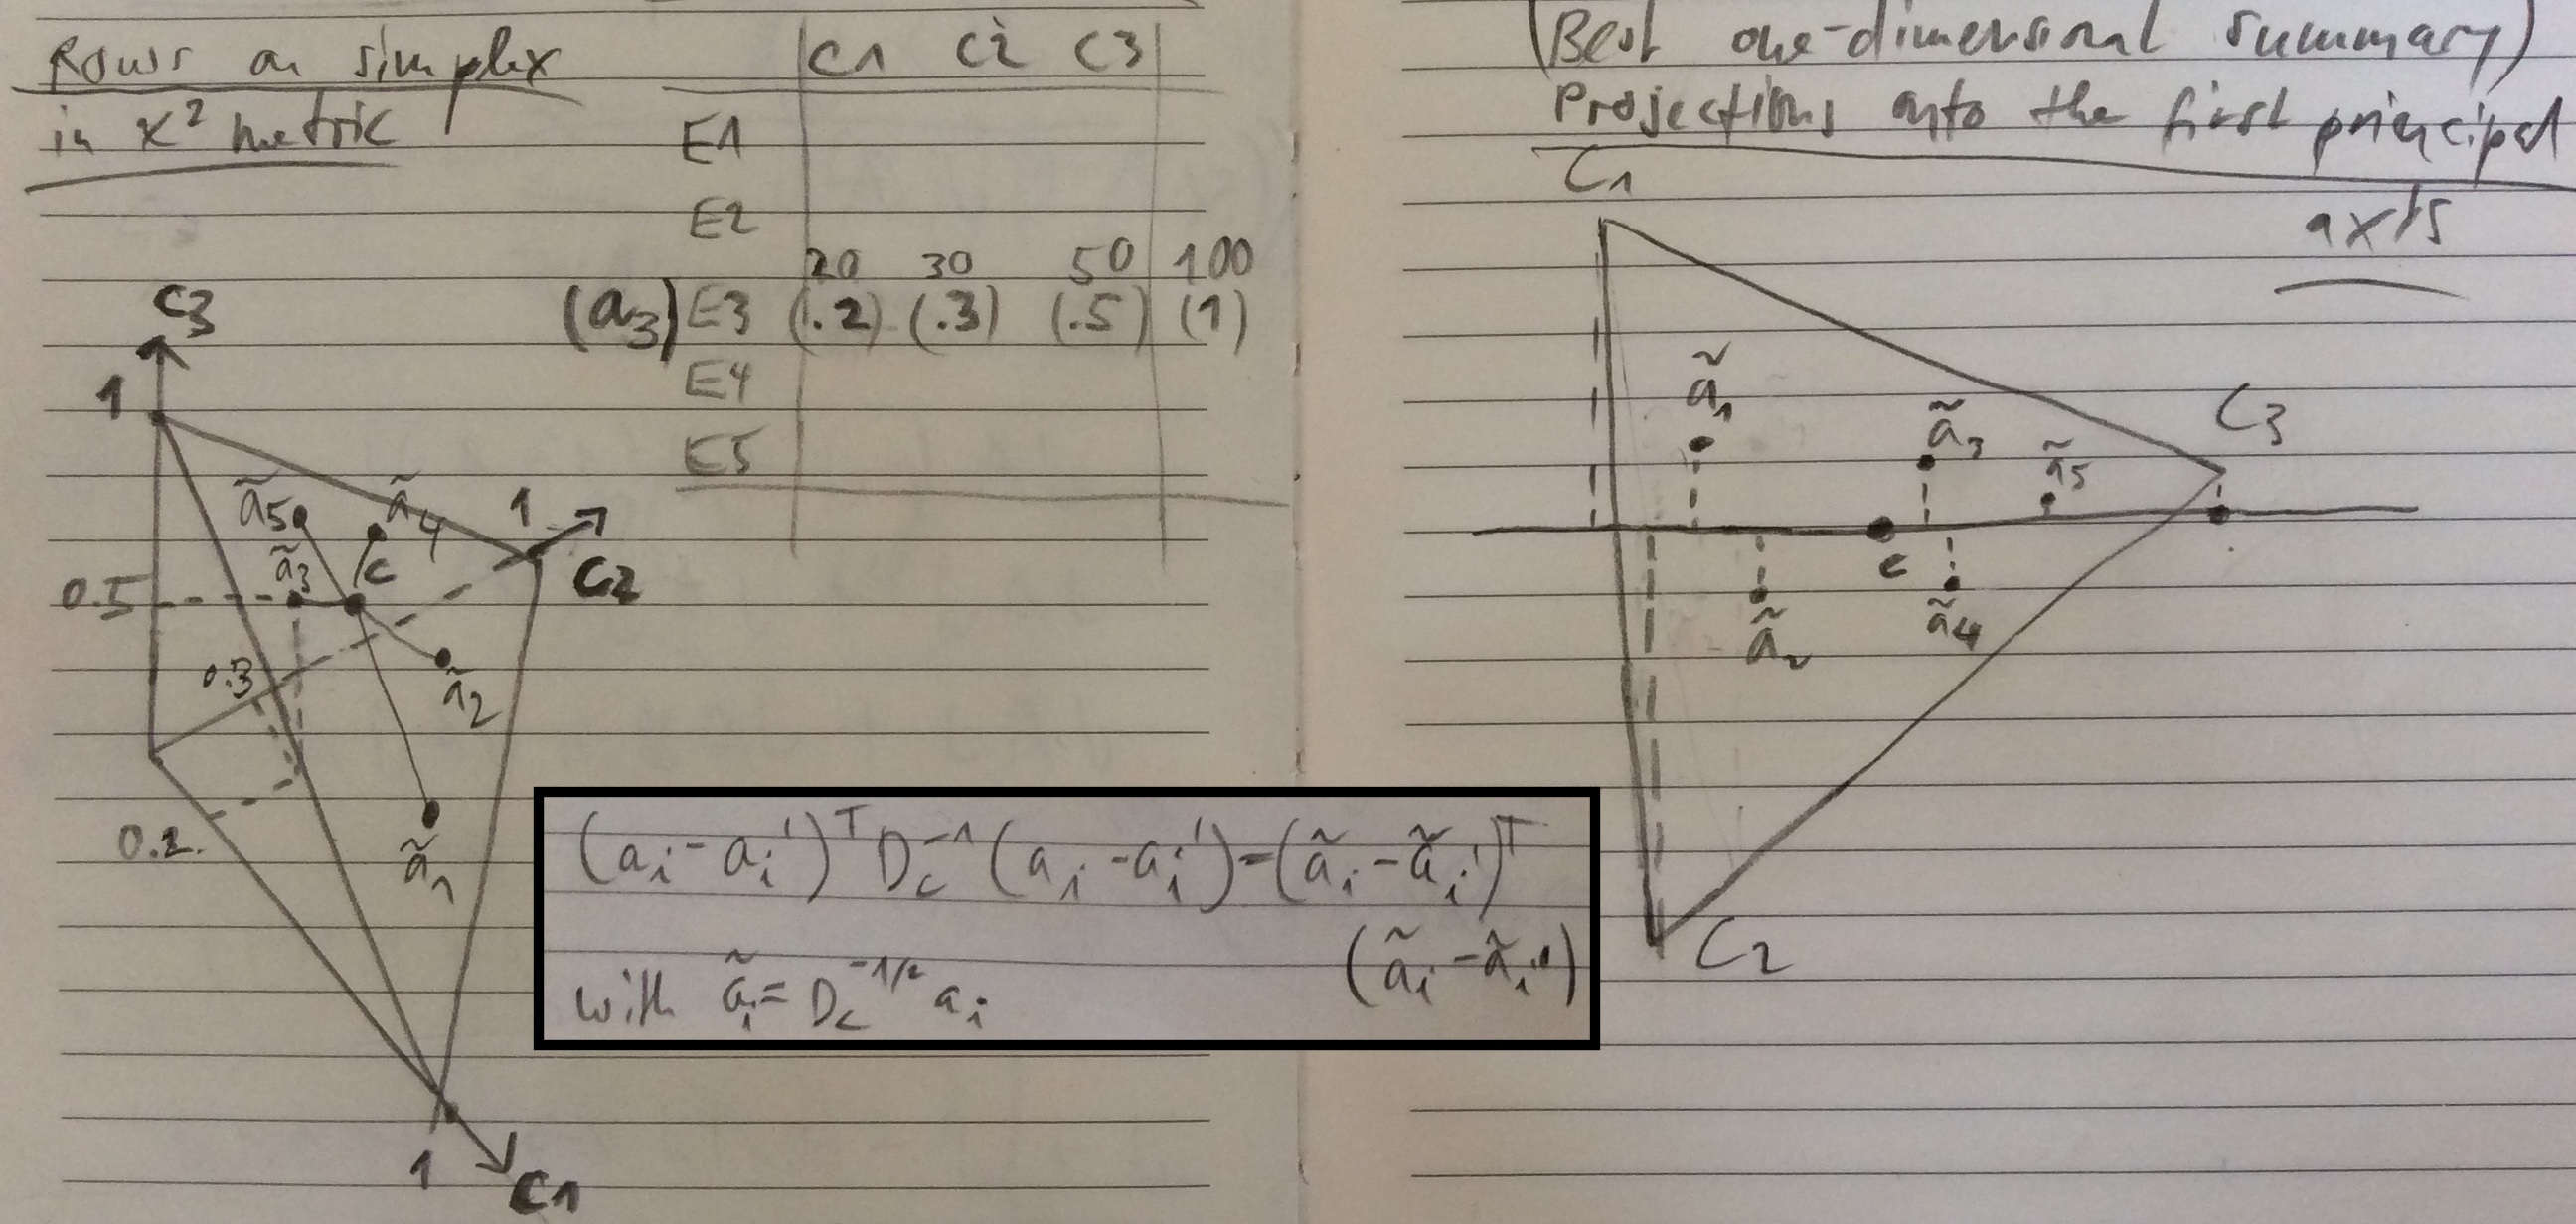 Rows on simplex
in χ² metric
C1 C2 C3
E1
E2
20 30 50 100
(a₃) E3 (.2) (.3) (.5) (1)
E4
E5
C3
1
ã₅ ã₄
1
C2
ã₃ c
0.5
0.3
ã₂
0.2
ã₁
1
C1
(aᵢ - aᵢ')ᵀ D_c⁻¹ (aᵢ - aᵢ') = (ãᵢ - ãᵢ')ᵀ
(ãᵢ - ãᵢ')
with ãᵢ = D_c^-1/2 aᵢ
(Best one-dimensional summary)
Projections onto the first principal
axis
C1
ã₁
C3
ã₃
ã₅
c
ã₂
ã₄
C2